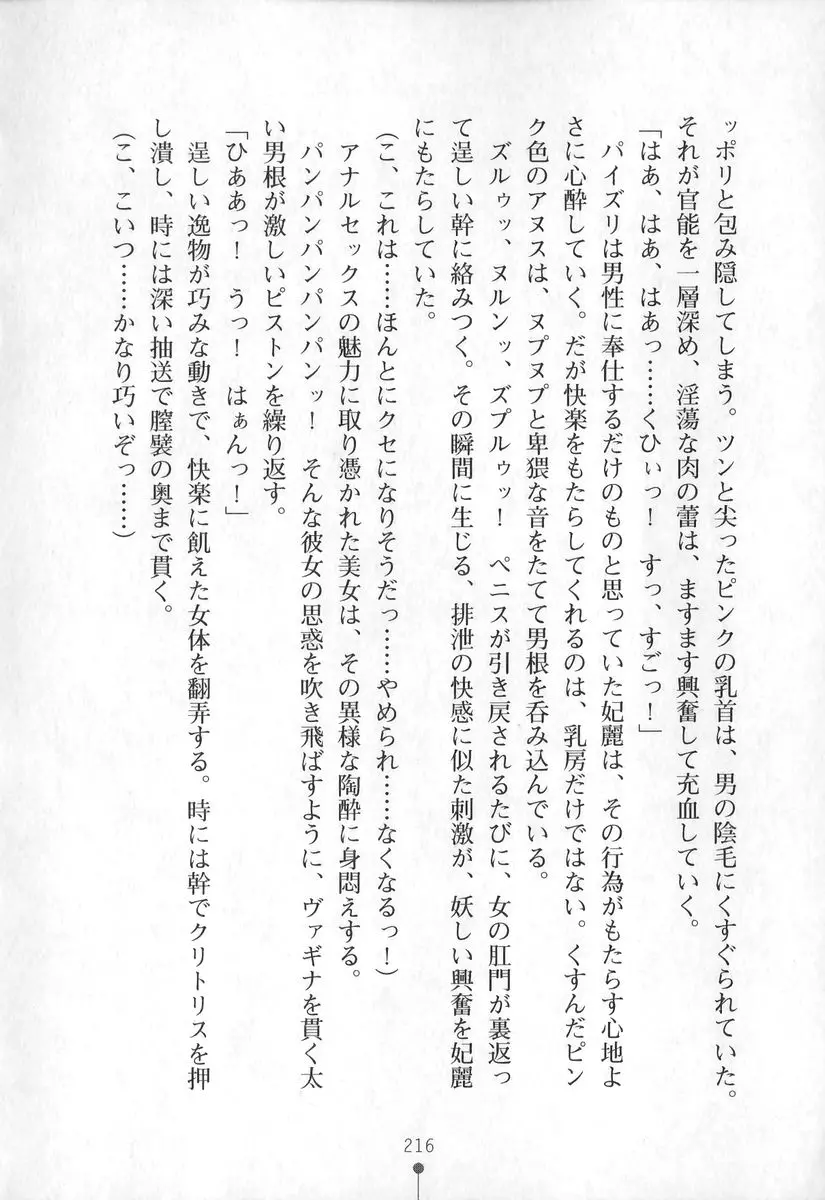 ッポリと包み隠してしまう。ツンと尖ったピンクの乳首は、男の陰毛にくすぐられていた。
それが官能を一層深め、淫蕩な肉の蕾は、ますます興奮して充血していく。
「はあ、はあ、はあっ……くひぃっ！　すっ、すごっ！」
　パイズリは男性に奉仕するだけのものと思っていた妃麗は、その行為がもたらす心地よ
さに心酔していく。だが快楽をもたらしてくれるのは、乳房だけではない。くすんだピン
ク色のアヌスは、ヌプヌプと卑猥な音をたてて男根を呑み込んでいる。
　ズルゥッ、ヌルンッ、ズプルゥッ！　ペニスが引き戻されるたびに、女の肛門が裏返っ
て逞しい幹に絡みつく。その瞬間に生じる、排泄の快感に似た刺激が、妖しい興奮を妃麗
にもたらしていた。
（こ、これは……ほんとにクセになりそうだっ……やめられ……なくなるっ！）
　アナルセックスの魅力に取り憑かれた美女は、その異様な陶酔に身悶えする。
　パンパンパンパンパンッ！　そんな彼女の思惑を吹き飛ばすように、ヴァギナを貫く太
い男根が激しいピストンを繰り返す。
「ひああっ！　うっ！　はぁんっ！」
　逞しい逸物が巧みな動きで、快楽に飢えた女体を翻弄する。時には幹でクリトリスを押
し潰し、時には深い抽送で膣襞の奥まで貫く。
（こ、こいつ……かなり巧いぞっ……）
216